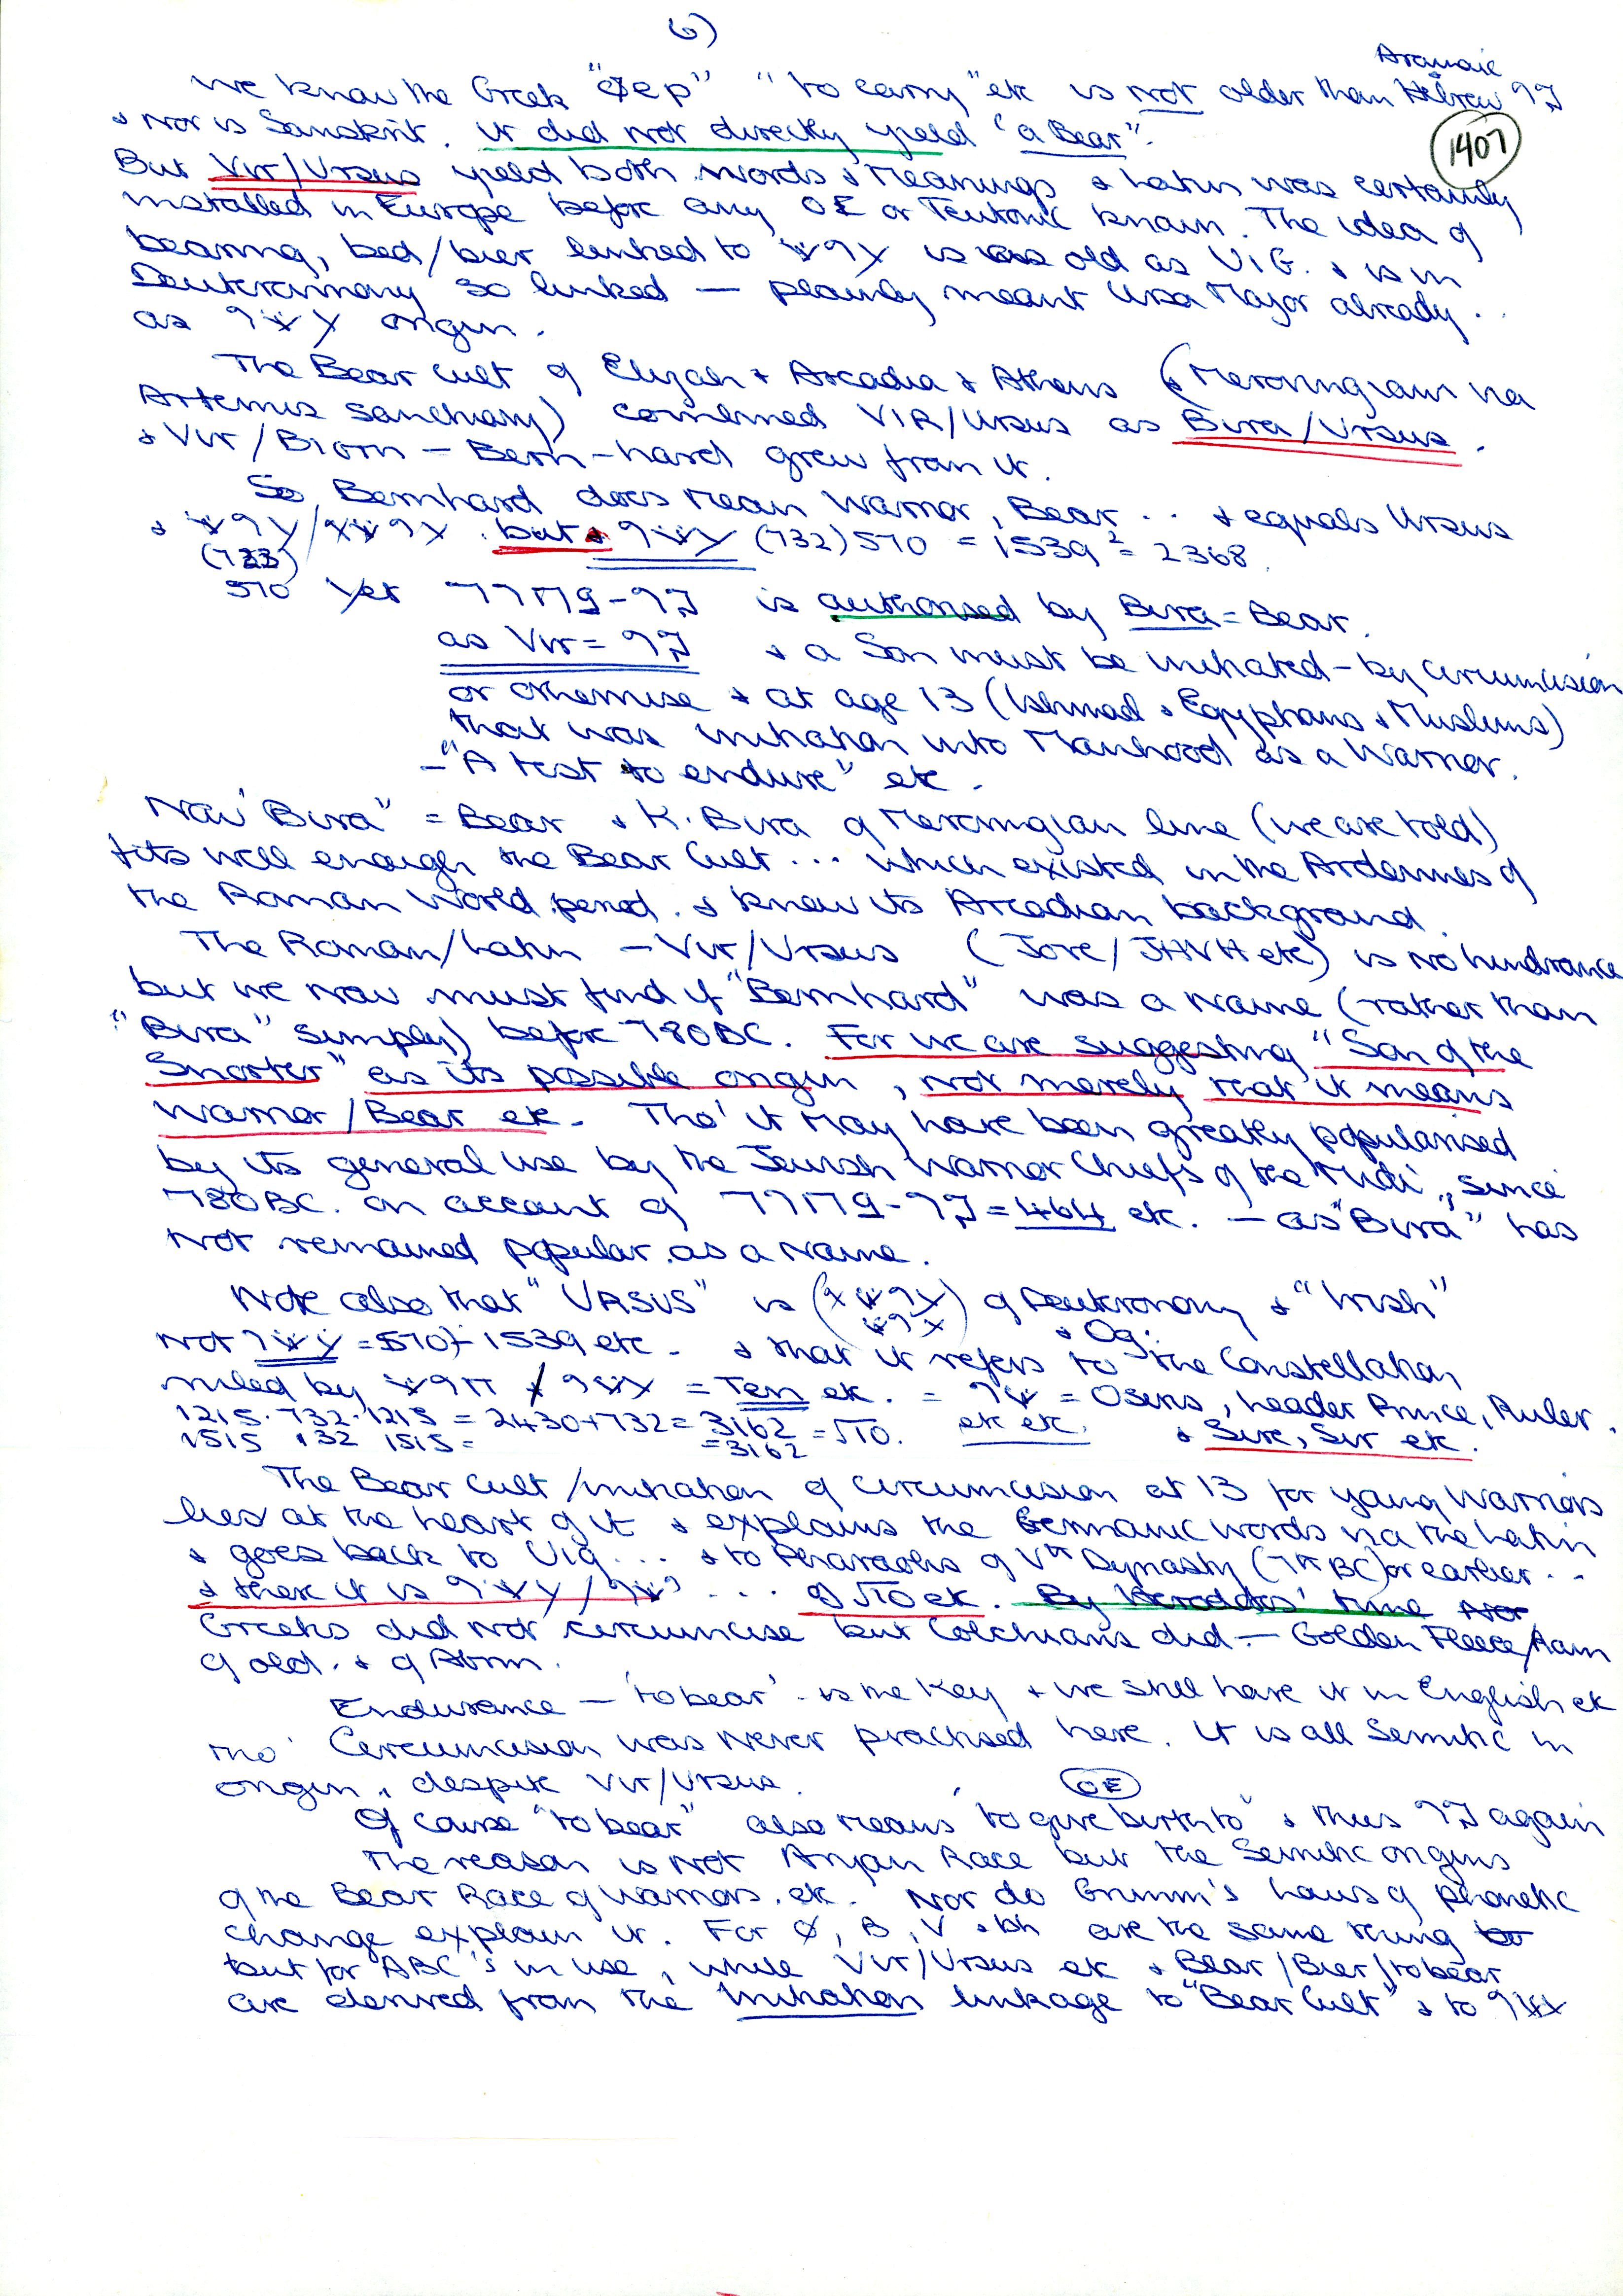 6)
Aramaic
We know the Greek "φερ" "to carry" etc is not older than Hebrew
1407
& nor is Sanskrit. it did not directly yield "a Bear".
But Vir/Ursus yield both words & meanings & Latin was certainly
installed in Europe before any OE or Teutonic known. The idea of
bearing, bed/bier linked to is as old as UIG. & is in
Deuteronomy so linked — plainly meant Ursa Major already.
as origin.
The Bear Cult of Elijah & Arcadia & Athens (& Merovingian via
Artemis sanctuary) combined VIR/Ursus as Bira/Ursus.
& Vir/Biorn - Bern-hard grew from it.
So Bernhard does mean Warrior, Bear .. & equals Ursus
& but & (732) 570 = 1539² = 2368.
(733)
570 Yet is authorised by Bira = Bear.
as Vir = & a Son must be initiated - by circumcision
or otherwise & at age 13 (Ishmael & Egyptians & Muslims)
that was initiation into Manhood as a Warrior.
- "A test to endure" etc.
Now "Bira" = Bear & K. Bira of Merovingian line (we are told)
fits well enough the Bear Cult ... which existed in the Ardennes of
the Roman World period. & knew its Arcadian background.
The Roman/Latin - Vir/Ursus (Jove/JHVH etc) is no hindrance
but we now must find if "Bernhard" was a Name (rather than
"Bira" simply) before 780BC. For we are suggesting "Son of the
Snorter" as its possible origin, not merely that it means
Warrior/Bear etc. Tho' it may have been greatly popularised
by its general use by the Jewish Warrior Chiefs of the Midi, since
780BC. on account of = 464 etc. - as "Bira" has
not remained popular as a Name.
Note also that "URSUS" is of Deuteronomy & "Irish"
& Og.
Not = 570 - 1539 etc. & that it refers to the Constellation
ruled by = Ten etc. = = Osiris, Leader Prince, Ruler.
1215. 732. 1215 = 2430 + 732 = 3162 = √10. etc etc. & Sire, Sir etc.
1515 132 1515 = = 3162
The Bear Cult/initiation of circumcision at 13 for young Warriors
lies at the heart of it & explains the Germanic words via the Latin
& goes back to Uig ... & to Pharaohs of Vth Dynasty or earlier ..
& there it is ... of √10 etc. By Herodotus' time
Greeks did not circumcise but Colchians did - Golden Fleece/Ram
of old. & of Abrm.
Endurance - 'to bear' - is the Key & we still have it in English etc
tho' Circumcision was never practised here. It is all Semitic in
origin, despite Vir/Ursus.
OE
Of course "to bear" also means "to give birth to" & thus again
The reason is not Aryan Race but the Semitic origins
of the Bear Race of Warriors. etc. Nor do Grimm's Laws of phonetic
change explain it. For φ, B, V & bh are the same thing
but for ABC's in use, while Vir/Ursus etc & Bear/Bier/to bear
are derived from the initiation linkage to "Bear Cult" & to